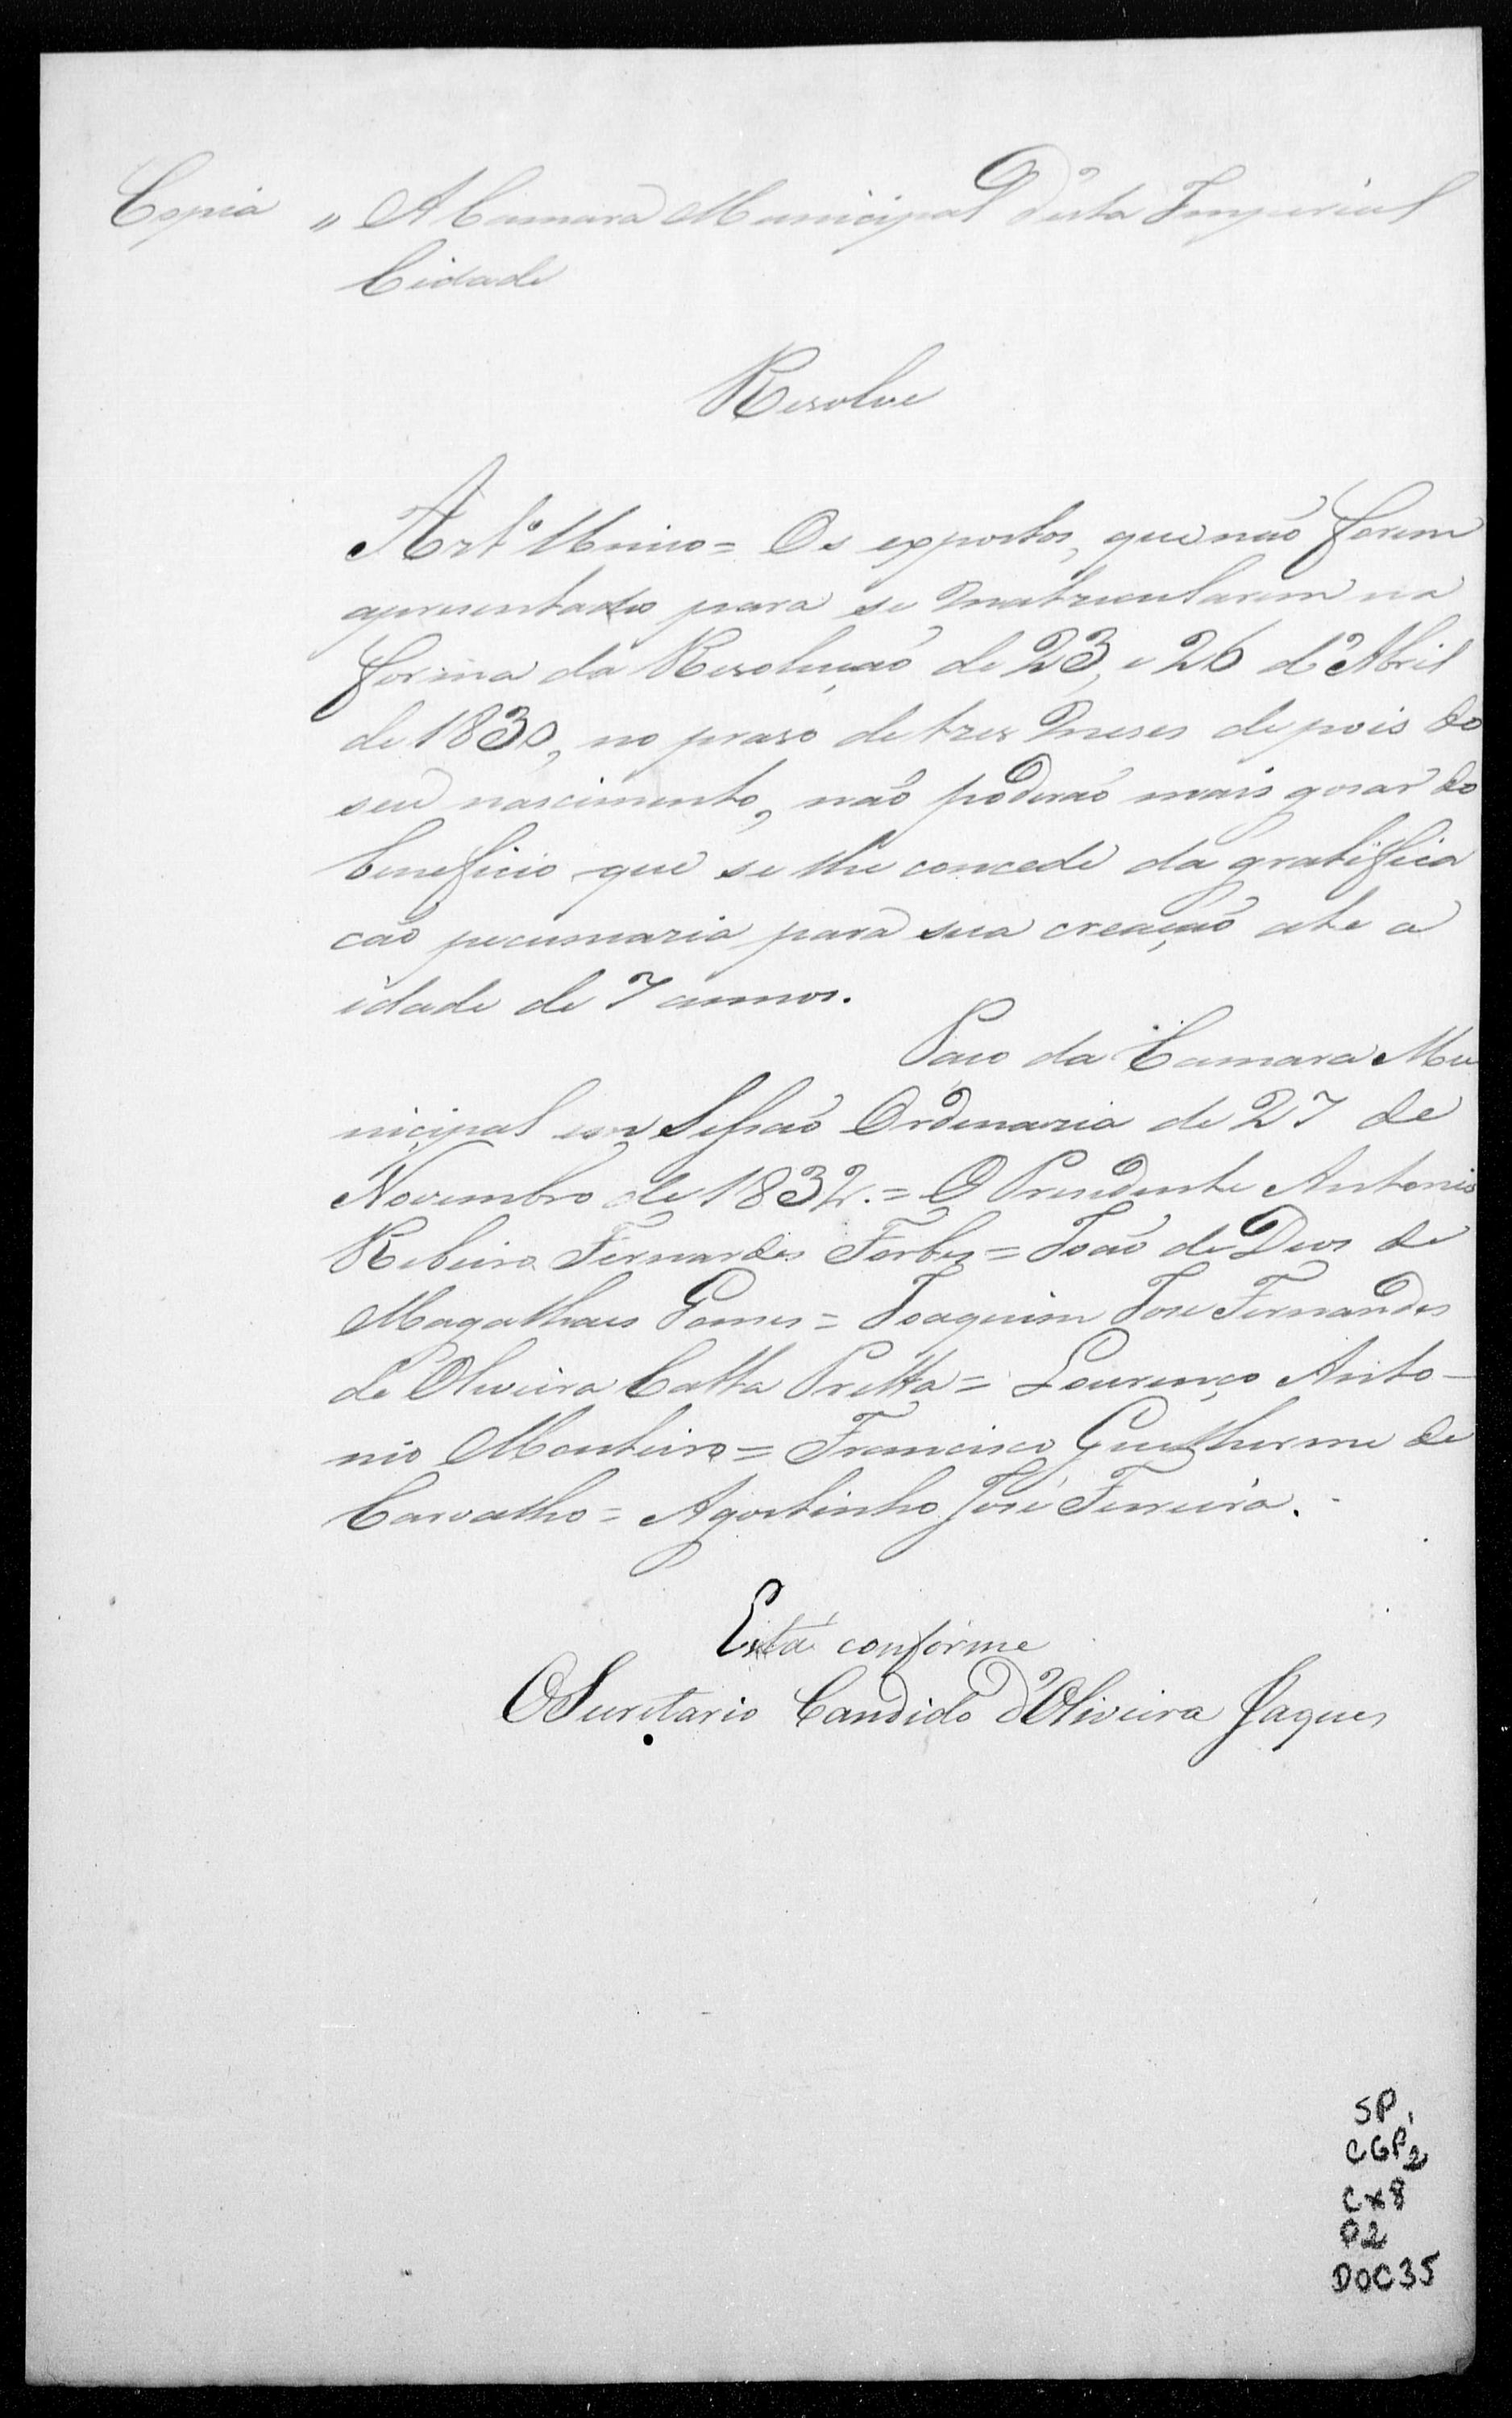 Copia " A Camara Municipal d'esta Imperial
Cidade
Resolve
Art.º Unico = Os expostos, que não forem
apresentados para se matricularem na
forma da Resolução de 23, e 26 d'Abril
de 1830, no praso de tres meses depois do
seu nascimento, não poderão mais gosar do
beneficio que se lhe concede da gratifica
cão pecunaria para sua creação ate a
idade de 7 annos.
Paço da Camara Mu
nicipal em Sessão Ordenaria de 27 de
Novembro de 1832. = O Presidente Antonio
Ribeiro Fernandes Forbes = João de Deos de
Magalhaes Gomes = Joaquim Jose Fernandes
de Oliveira Catta Pretta = Lourenço Anto-
nio Monteiro = Francisco Guilherme de
Carvalho = Agostinho José Ferreira.
Está conforme
O Secretario Candido d'Oliveira Jaques
SP.
CGP2
Cx8
P2
DOC35